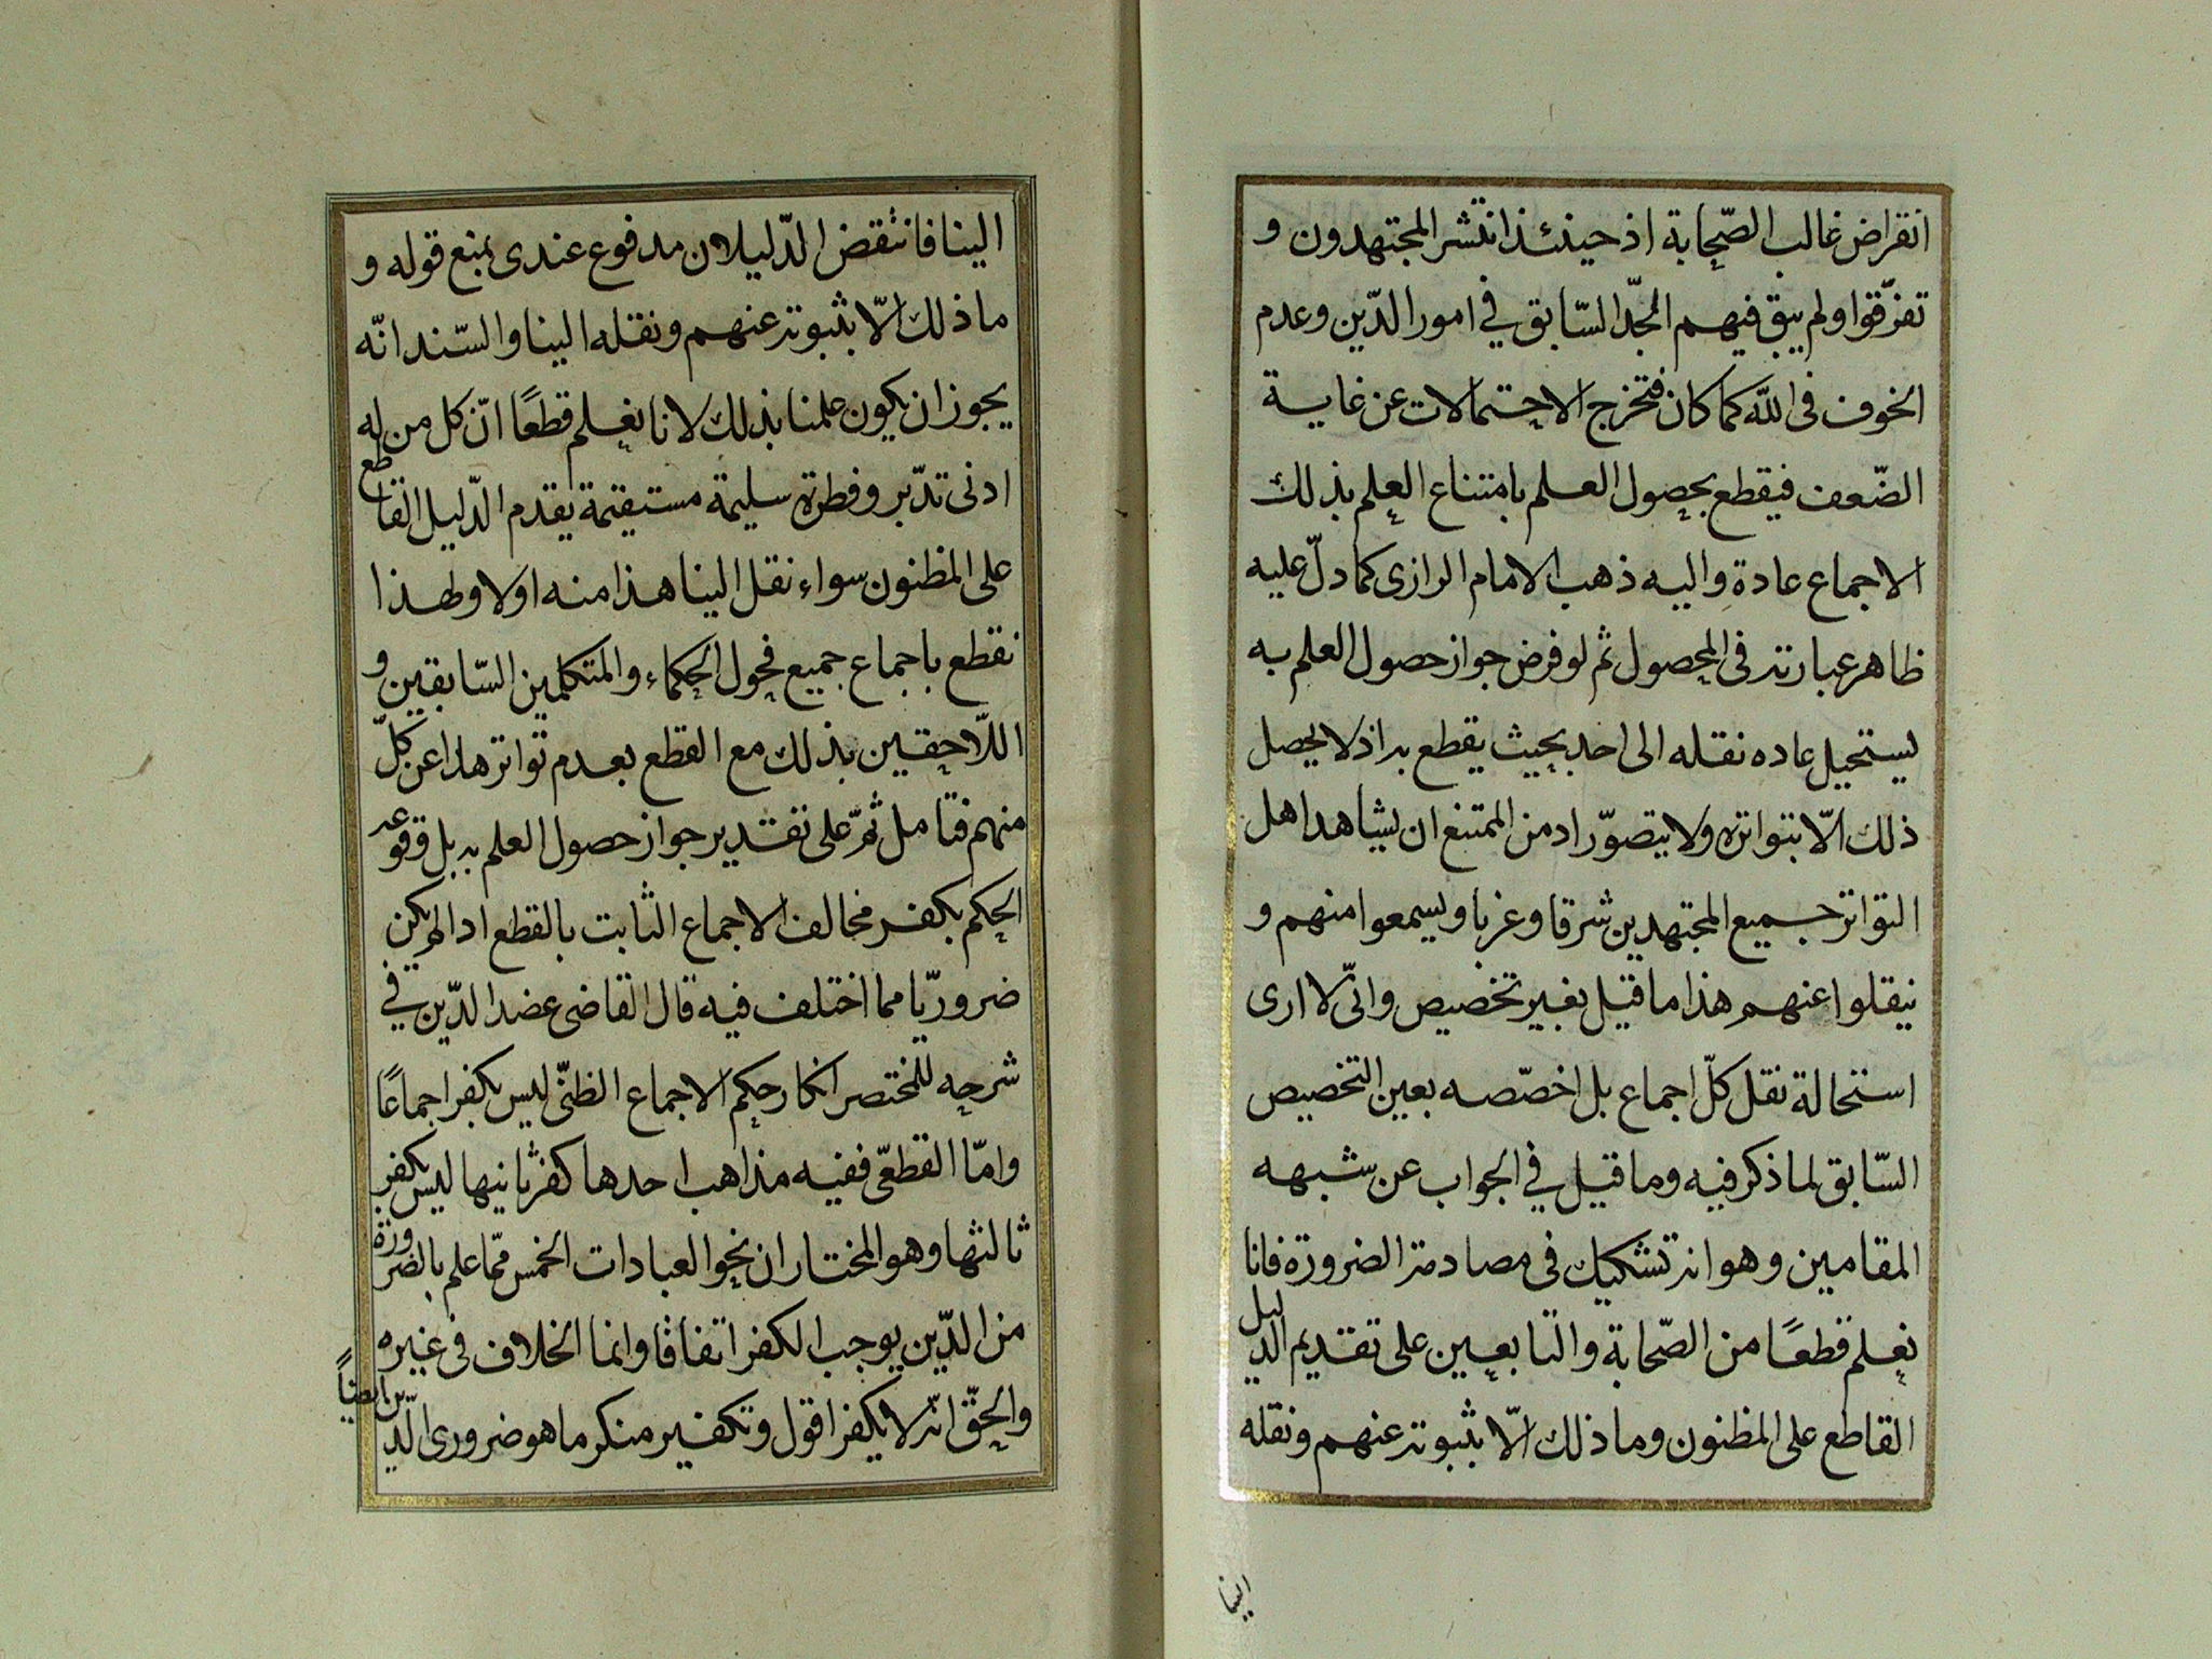 انقراض غالب الصّحابة اذ حينئذ انتشر المجتهدون و
تفرّقوا ولم يبق فيهم المجدّ السّابق في امور الدّين وعدم
الخوف فى اللّه كما كان فتخرج الاحتمالات عن غاية
الضّعف فيقطع بحصول العلم بامتناع العلم بذلك
الاجماع عادة واليه ذهب الامام الرازى كما دلّ عليه
ظاهر عبارته فى المحصول ثم لو فرض جواز حصول العلم به
ليستحيل عاده نقله الى احد بحيث يقطع به اذ لا يحصل
ذلك الّا بتواتره ولا يتصوّر اد من الممتنع ان يشاهد اهل
التواتر جميع المجتهدين شرقا وغربا ويسمعوا منهم و
ينقلوا عنهم هذا ما قيل بغير تخصيص وانّى لا ارى
استحالة نقل كلّ اجماع بل اخصّصه بعين التخصيص
السّابق لما ذكر فيه وما قيل في الجواب عن شبهه
المقامين وهو انه تشكيك فى مصادمة الضرورة فانا
نعلم قطعًا من الصّحابة والتابعين على تقديم الدليل
القاطع على المظنون وما ذلك الّا بثبوته عنهم ونقله
الينا
الينا فانتقض الدّليلان مدفوع عندى بمنع قوله و
ما ذلك الّا بثبوته عنهم ونقله الينا والسّند انّه
يجوز ان يكون علمنا بذلك لانا نعلم قطعًا انّ كل من له
ادنى تدّبر وفطرة سليمة مستقيمة يقدم الدّليل القاطع
على المظنون سواء نقل الينا هذا منه اولا ولهذا
نقطع باجماع جميع فحول الحكماء والمتكلمين السّابقين و
اللّاحقين بذلك مع القطع بعدم تواتر هذا عن كلّ
منهم فتامل ثمّ على تقدير جواز حصول العلم به بل وقوعه
الحكم بكفر مخالف الاجماع الثابت بالقطع اذا لم يكن
ضروريّا مما اختلف فيه قال القاضى عضد الدّين في
شرحه للمختصر انكار حكم الاجماع الظنّى ليس بكفر اجماعًا
وامّا القطعّى ففيه مذاهب احدها كفر ثانيها ليس بكفر
ثالثها وهو المختار ان نحو العبادات الخمس ممّا علم بالضرورة
من الدّين يوجب الكفر اتفاقا وانما الخلاف فى غيره
والحقّ انّه لا يكفر اقول وتكفير منكر ما هو ضرورى الّدين ايضاً